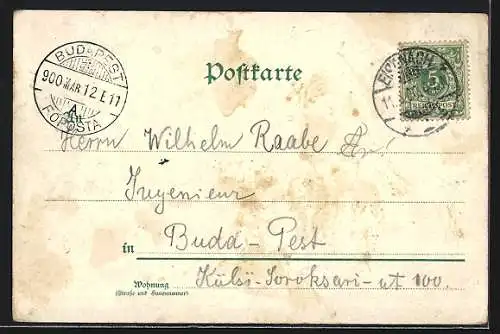 Postkarte
BUDAPEST
900 MAR 12 E 11
A
FŐPOSTA
EISENACH
5
REICHSPOST
An
Herrn Wilhelm Raabe
Ingenieur
in Buda-Pest
Wohnung Külsö-Soroksari-út 100.
(Straße und Hausnummer)